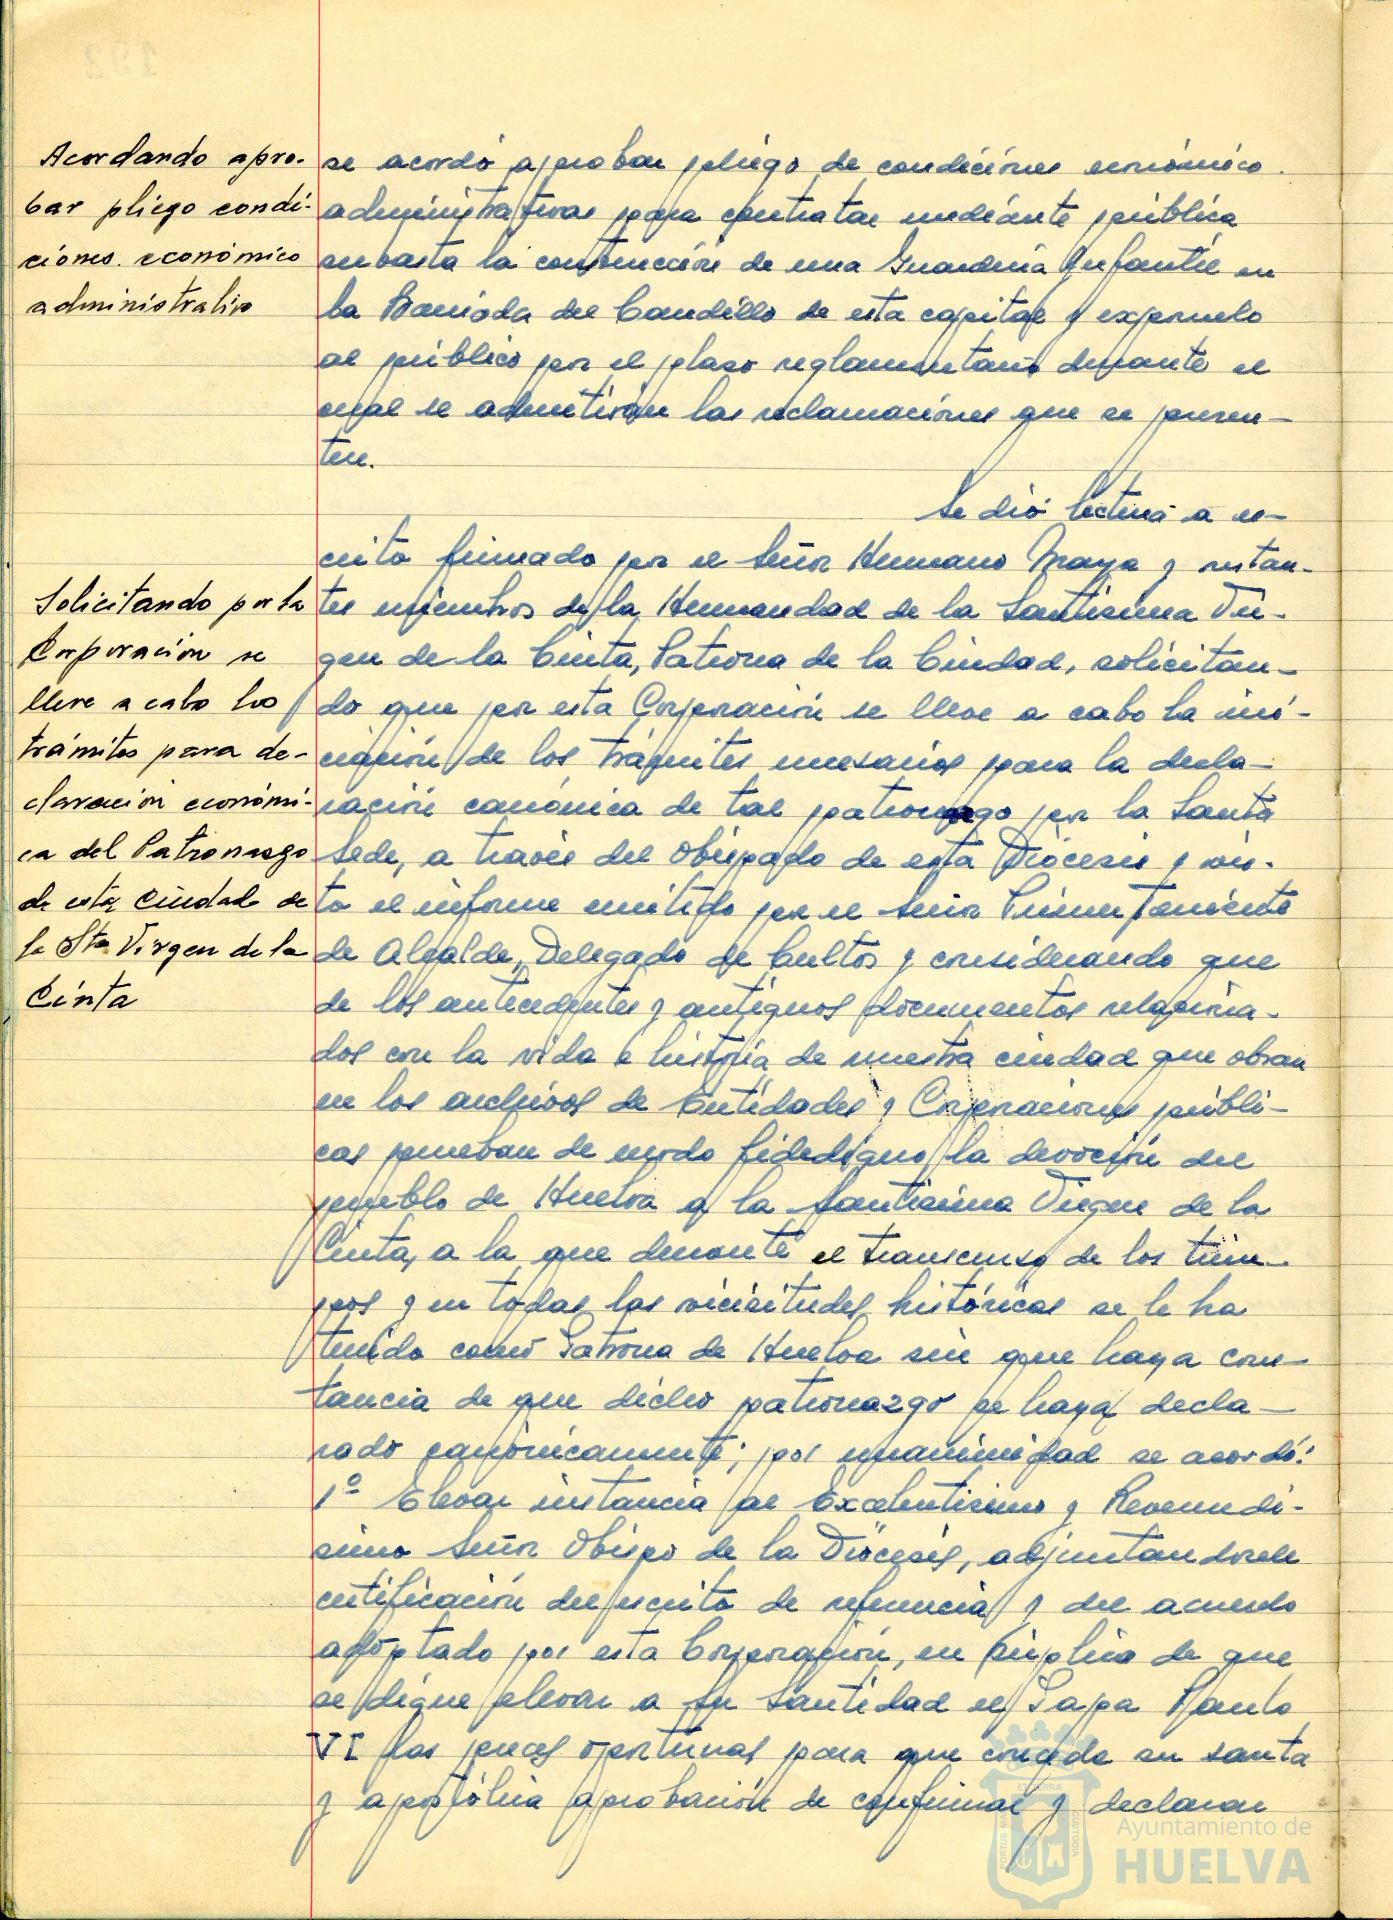 Acordando apro-
bar pliego condi-
ciones económico
administrativo
se acordó aprobar pliego de condiciones económico.
administrativas para contratar mediante pública
subasta la construcción de una Guardería Infantil en
la Barriada del Caudillo de esta capital y exponerlo
al público por el plazo reglamentario durante el
cual se admitirán las reclamaciones que se presen-
ten.
Se dió lectura a es-
crito firmado por el Señor Hermano Mayor y restan-
tes miembros de la Hermandad de la Santísima Vir-
gen de la Cinta, Patrona de la Ciudad, solicitan-
do que por esta Corporación se lleve a cabo la ini-
ciación de los trámites necesarios para la decla-
ración canónica de tal patronazgo por la Santa
Sede, a través del Obispado de esta Diócesis y vis-
to el informe emitido por el Señor Primer Teniente
de Alcalde, Delegado de Cultos y considerando que
de los antecedentes y antiguos documentos relaciona-
dos con la vida e historia de nuestra ciudad que obran
en los archivos de Entidades y Corporaciones públi-
cas prueban de modo fidedigno la devoción del
pueblo de Huelva a la Santísima Virgen de la
Cinta, a la que durante el transcurso de los tiem-
pos y en todas las vicisitudes históricas se le ha
tenido como Patrona de Huelva sin que haya cons-
tancia de que dicho patronazgo se haya decla-
rado canónicamente; por unanimidad se acordó:
1º Elevar instancia al Excelentísimo y Reverendí-
simo Señor Obispo de la Diócesis, adjuntandosele
certificación del escrito de referencia y del acuerdo
adoptado por esta Corporación, en súplica de que
se digne elevar a Su Santidad el Papa Paulo
VI las preces oportunas para que conceda su santa
y apostólica aprobación de confirmar y declarar
Solicitando por la
Corporación se
lleve a cabo los
trámites para de-
claración económi-
ca del Patronazgo
de esta Ciudad de
la Sta Virgen de la
Cinta
Ayuntamiento de
HUELVA